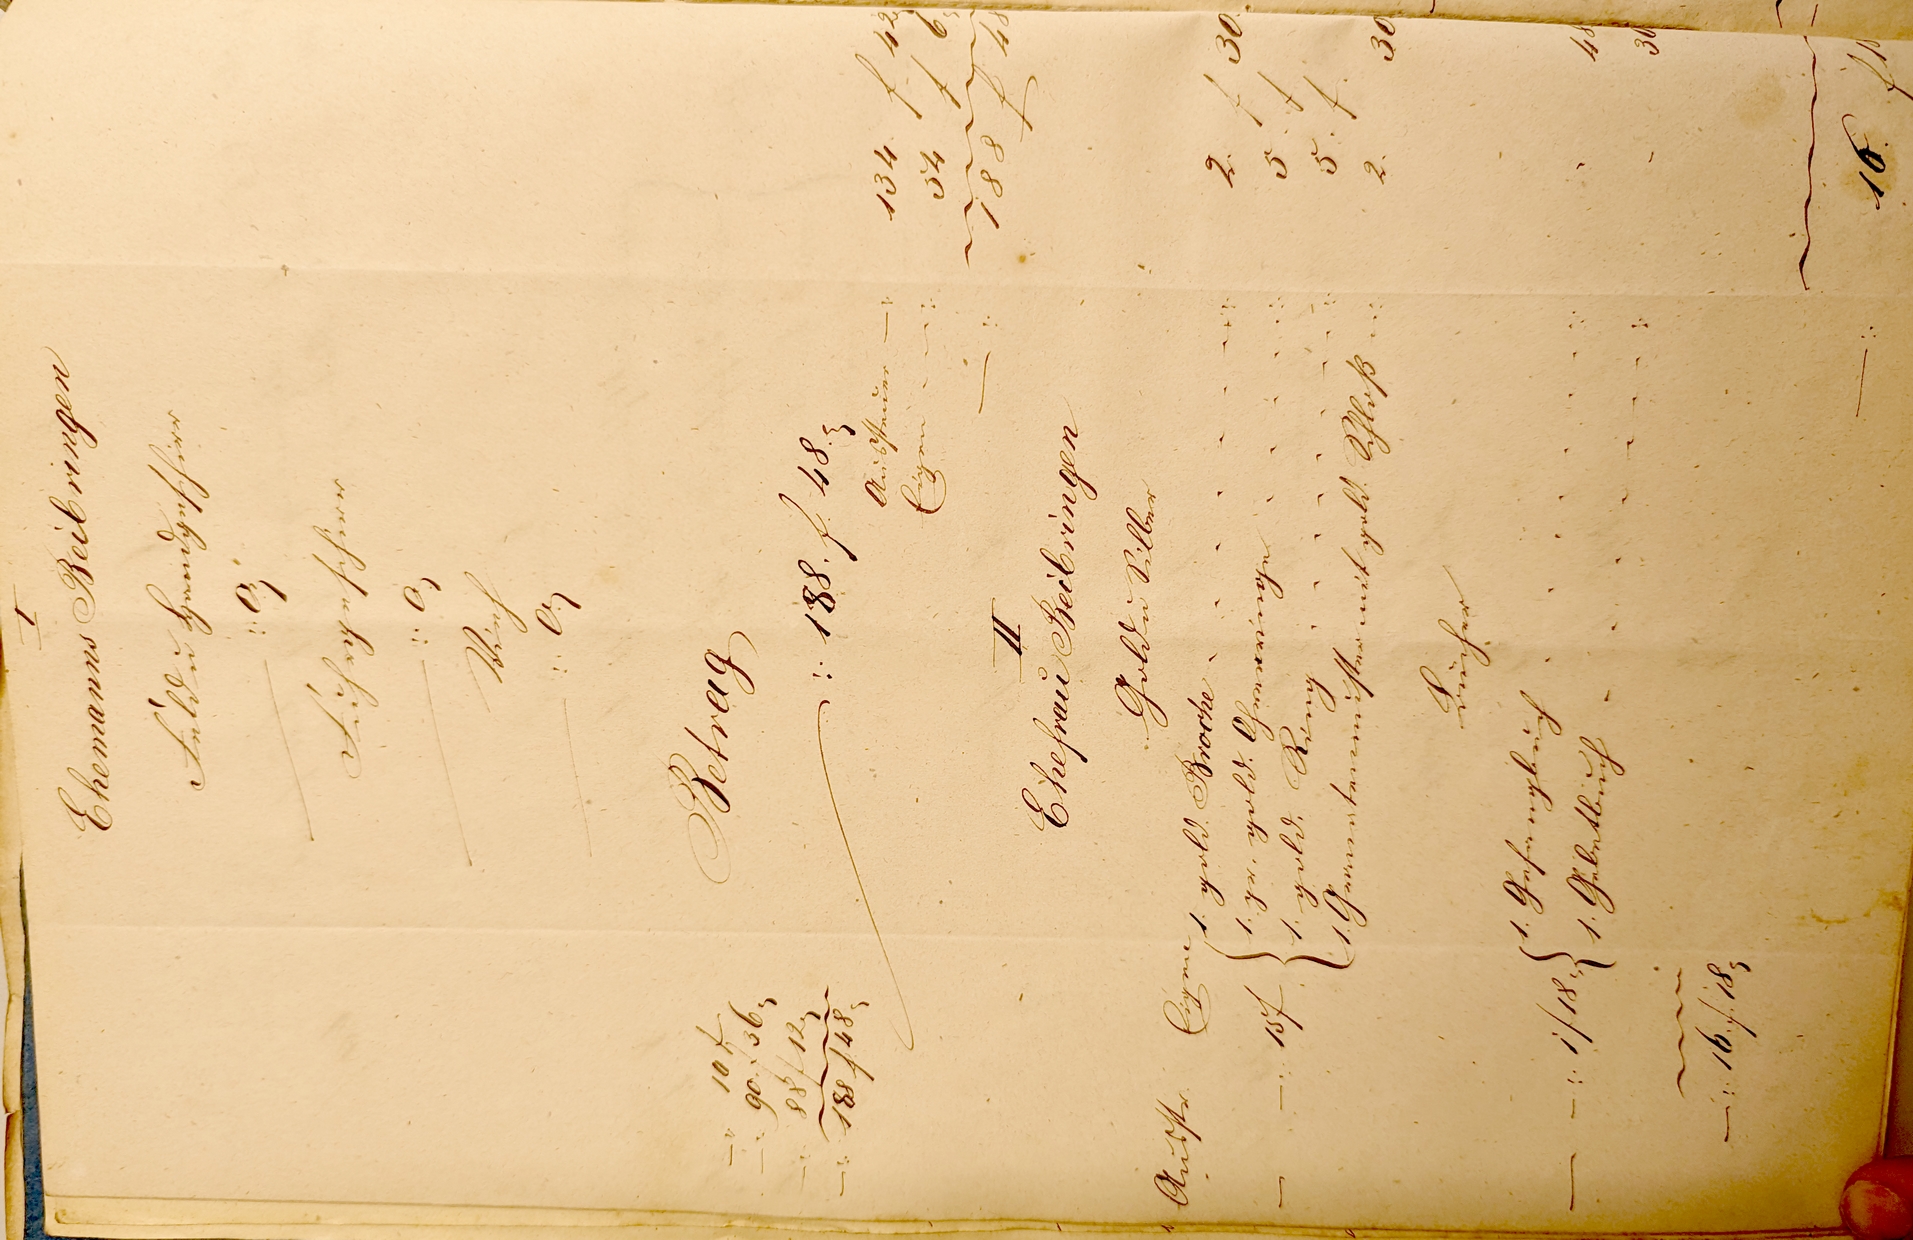 I
Ehemanns Beibringen
Feld u Handgeschirr
—:: 0.
Fuhrgeschirr
—:: 0.
Vieh
—:: 0.
Betrag
—:: 10 f
—:: 90. f 36
—:: 88 f 12
—:: 188 f 48
:: 188. f. 48.
Aussteuer —:: 134 f 42
Eigen —:: 54 f 6
—:: 188 f 48
II
Ehefrau Beibringen
Gold u Silber
Ausstr. Eigen
1. gold. Broche :: 2. f 30.
— —: 15f 1. gold. :: 5. f
1. gold. Ring :: 5. f.
1. mit gold. Schloß :: 2. 30
Bücher
1. Gesangbuch :: 48
— —:: 1 f 18 1. Gebetbuch :: 30
—:: 16. f 18
—:: 16. f 18